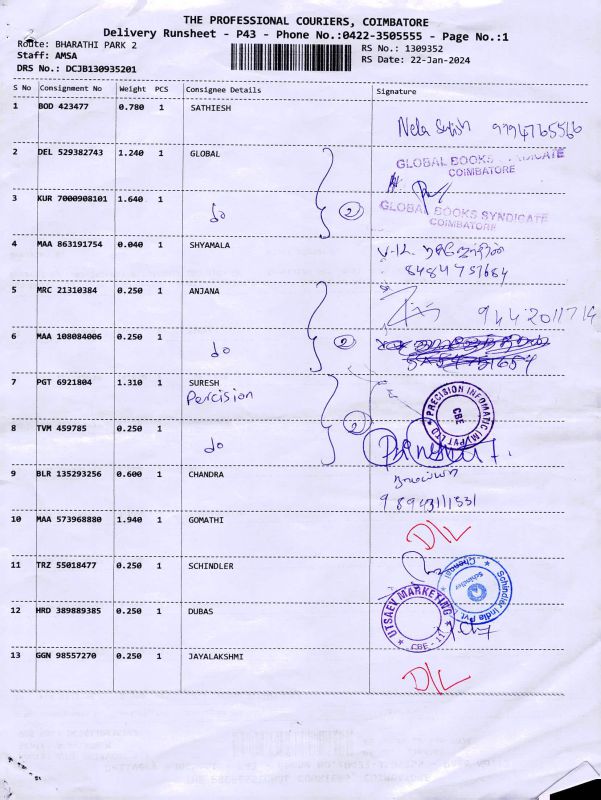 THE PROFESSIONAL COURIERS, COIMBATORE
Delivery Runsheet - P43 - Phone No.:0422-3505555 - Page No.:1
Route: BHARATHI PARK 2
RS No.: 1309352
Staff: AMSA
RS Date: 22-Jan-2024
DRS No.: DCJB130935201
S No Consignment No Weight PCS Consignee Details Signature
1 BOD 423477 0.780 1 SATHIESH
2 DEL 529382743 1.240 1 GLOBAL
GLOBAL BOOKS SYNDICATE
COIMBATORE
3 KUR 7000908101 1.640 1
do 2
GLOBAL BOOKS SYNDICATE
COIMBATORE
4 MAA 863191754 0.040 1 SHYAMALA
8484757684
5 MRC 21310384 0.250 1 ANJANA
9442011714
6 MAA 108084006 0.250 1
do 2
7 PGT 6921804 1.310 1 SURESH
Percision
PRECISION INFOMATIC (M) PVT LTD
CBE
8 TVM 459785 0.250 1
do 2
9 BLR 135293256 0.600 1 CHANDRA
10 MAA 573968880 1.940 1 GOMATHI
D/L
11 TRZ 55018477 0.250 1 SCHINDLER
Schindler India Pvt. Chennai
Schindler
12 HRD 389889385 0.250 1 DUBAS
UTSAEV MARKETING
CBE - 11
13 GGN 98557270 0.250 1 JAYALAKSHMI
D/L